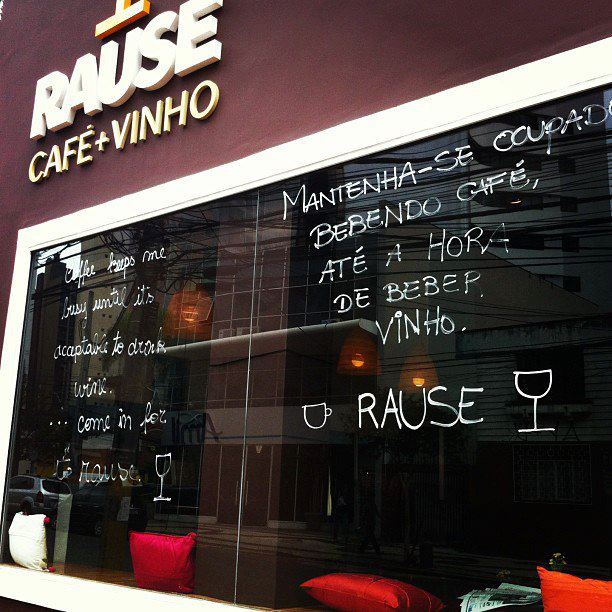 RAUSE
CAFÉ+VINHO
coffee keeps me
busy until it's
acaptable to drink
wine.
... come in for
rause
MANTENHA-SE OCUPADO
BEBENDO CAFÉ,
ATÉ A HORA
DE BEBER
VINHO.
RAUSE